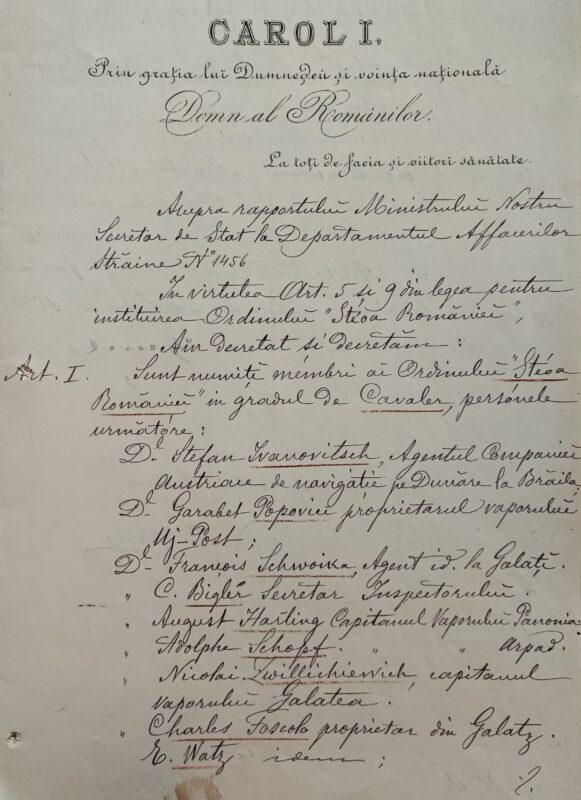 CAROL I.
Prin grația lui Dumneḑeŭ și voința națională
Domn al Românilor.
La toți de facia și viitori sănătate.
Asupra rapportuluĭ Ministruluĭ Nostru
Secretar de Stat la Departamentul Affacerilor
străine Nº 1456
In virtutea Art. 5 și 9 din legea pentru
instituirea Ordinuluĭ "Stéoa Românieĭ",
Am decretat si decretăm:
Art. I. Sunt numițĭ membri ai Ordinuluĭ "Stéoa
Românieĭ" in gradul de Cavaler, persónele
următóre:
Dl Stefan Ivanovitsch, Agentul Companieĭ
Austriace de navigatie pe Dunăre la Brăila;
Dl Garabet Popovicĭ proprietarul vaporuluĭ
Uj-Post;
Dl François Schwoika, Agent id. la Galațĭ.
" C. Bigler Secretar Inspectoruluĭ.
" August Harling Capitanul Vaporuluĭ Panonia.
" Adolphe Schopf. " " Arpad.
" Nicolai Zwillichiewich, capitanul
vaporuluĭ Galatea.
" Charles Foscolo proprietar din Galatz.
E. Watz idem;